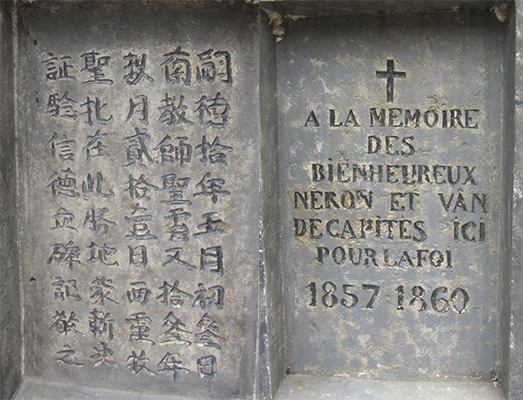 嗣徳拾年五月初叁日
南教師聖雲又拾叁年
玖月貳拾壹日西靈牧
聖北在此勝地蒙斬决
証驗信德立碑記敬之
A LA MEMOIRE
DES
BIENHEUREUX
NERON ET VAN
DECAPITES ICI
POUR LA FOI
1857-1860